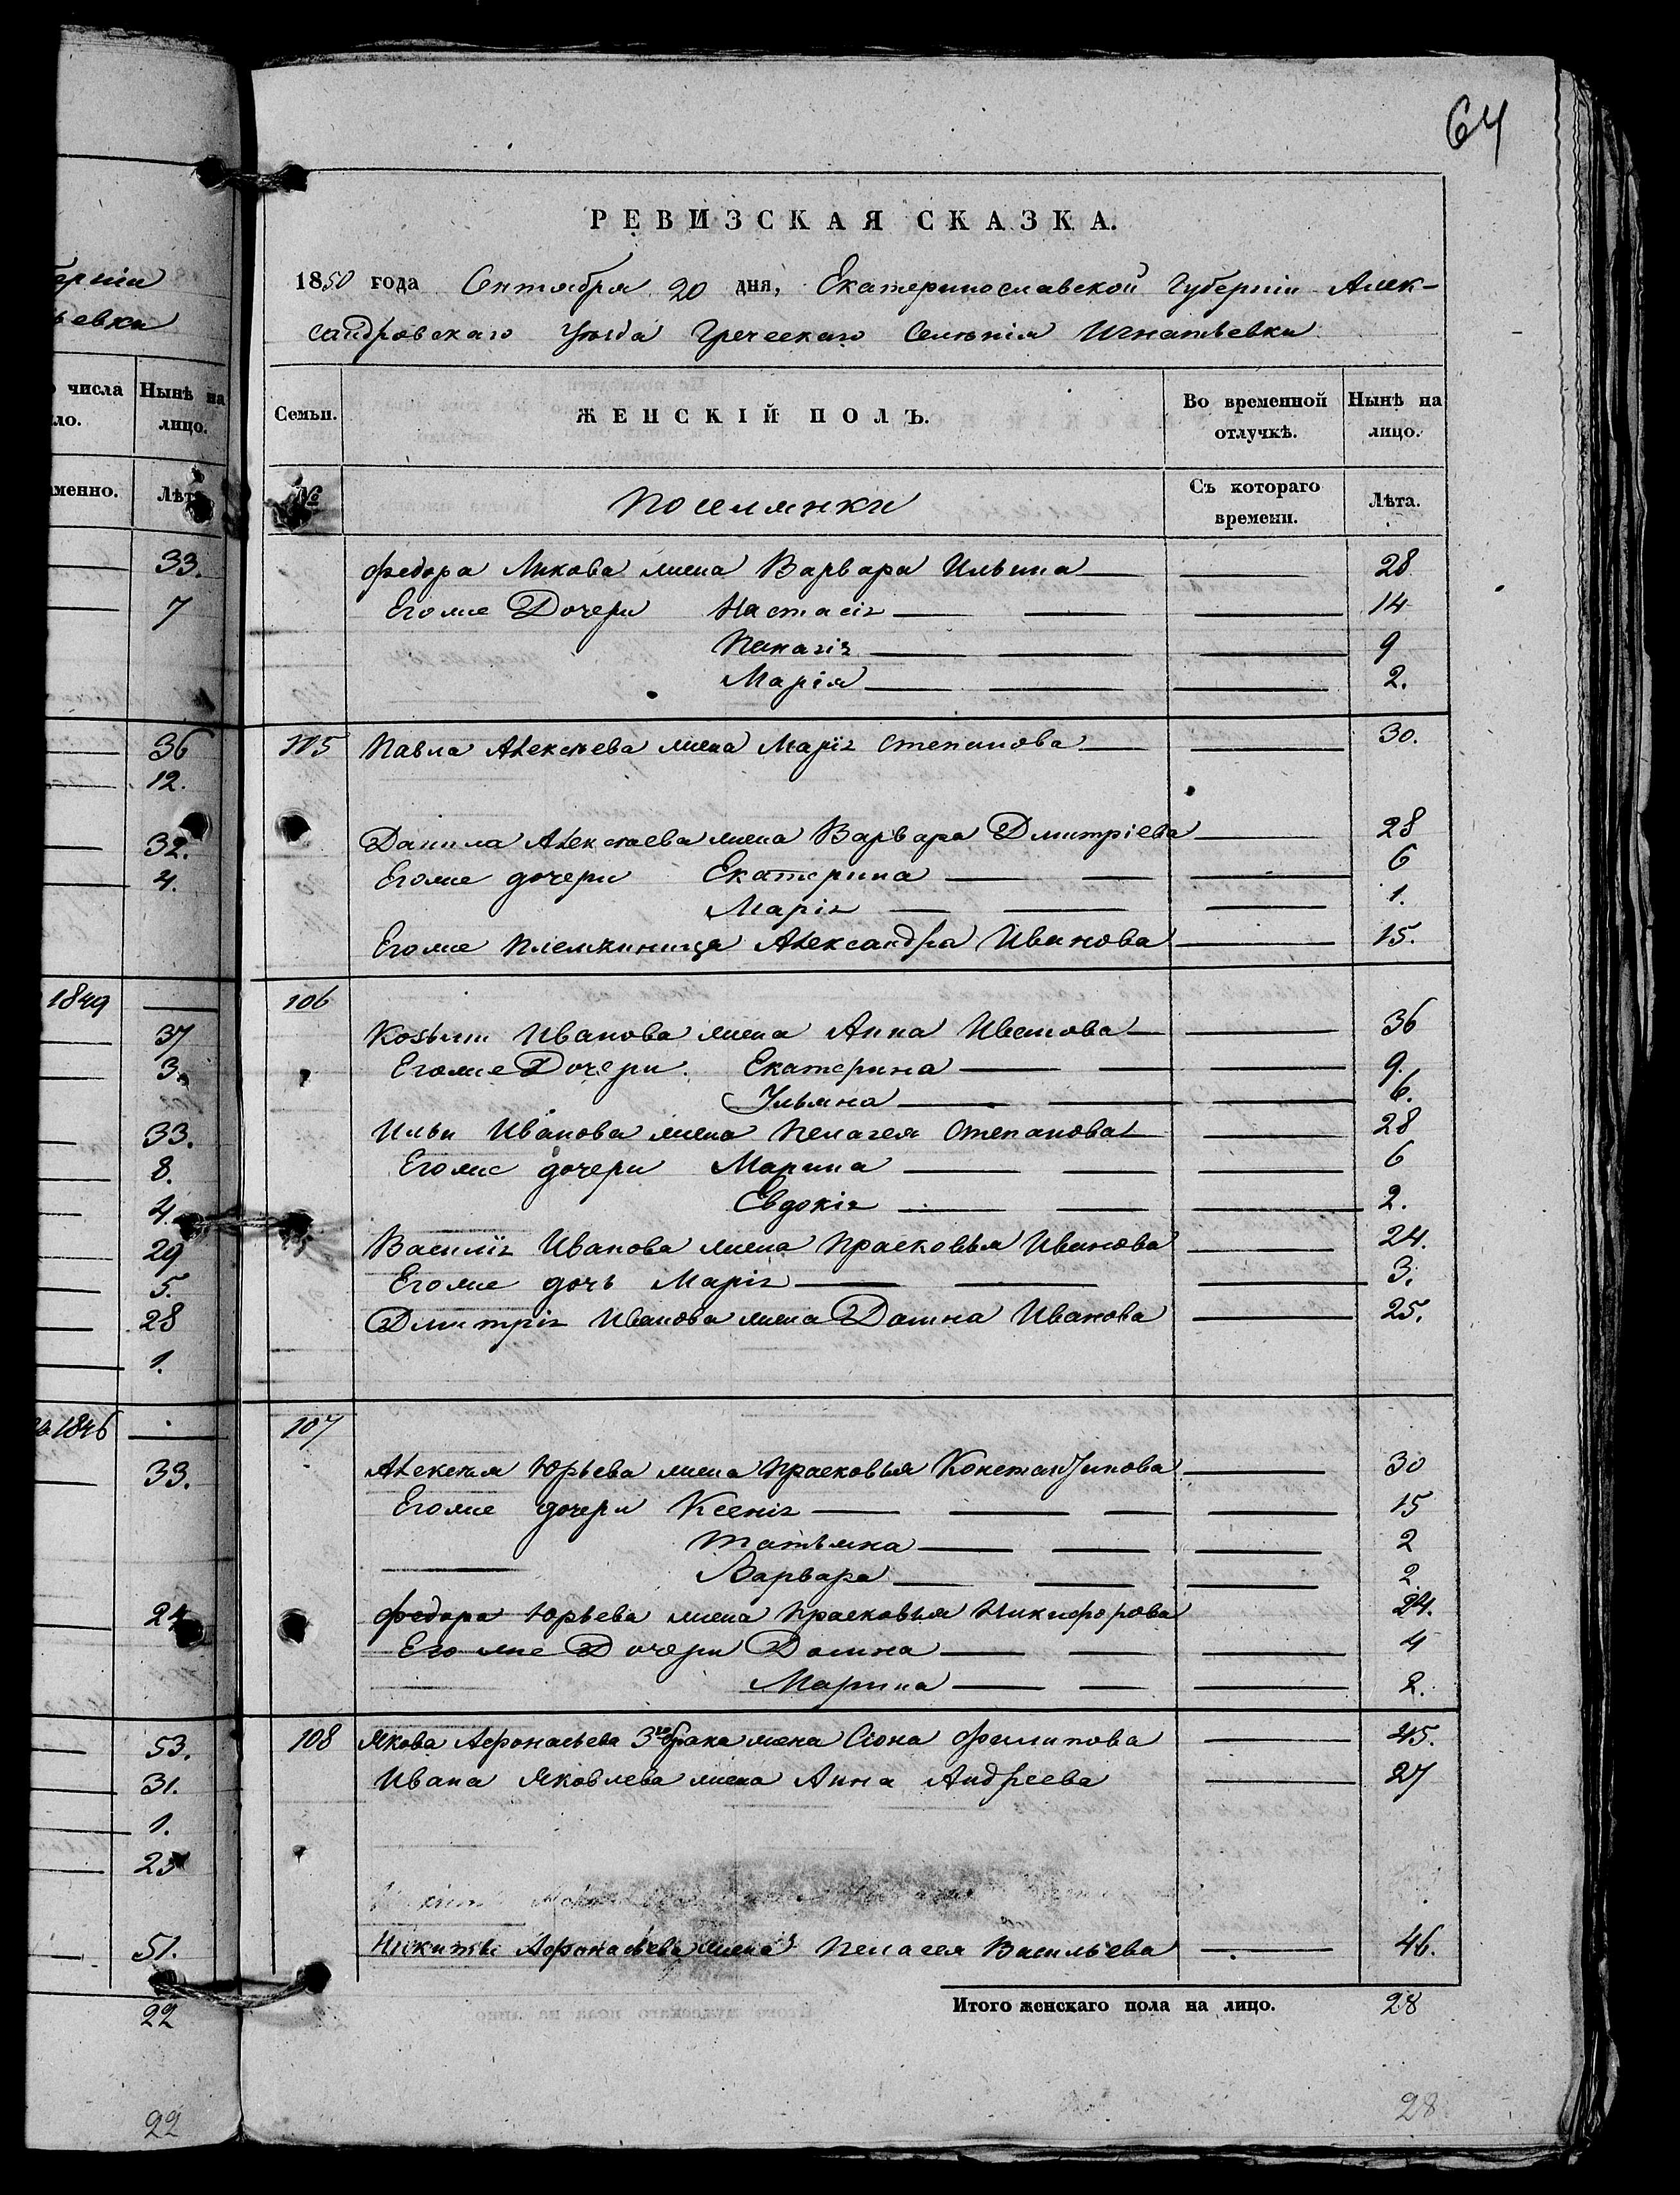 64
РЕВИЗСКАЯ СКАЗКА.
1850 года Сентября 20 дня, Екатеринославской Губерніи Алек-
сандровскаго Уезда Греческаго Селенія Игнатьевки
Семьи. ЖЕНСКІЙ ПОЛЪ. Во временной отлучкѣ. Нынѣ на лицо.
№ Поселянки Съ котораго времени. Лѣта.
Федора Ликова жена Варвара Ильина 28
Егоже Дочери Настасія 14
Пелагія 9
Марія 2.
105 Павла Алексеева жена Марія Степанова 30.
Данила Алексеева жена Варвара Дмитріева 28
Егоже дочери Екатерина 6
Марія 1.
Егоже племянница Александра Иванова 15.
106
Козьми Иванова жена Анна Иванова 36
Егоже Дочери Екатерина 9.
Ульяна 6.
Ильи Иванова жена Пелагея Степанова 28
Егоже дочери Марина 6
Евдокія 2.
Василія Иванова жена Прасковья Иванова 24.
Егоже дочь Марія 3.
Дмитрія Иванова жена Домна Иванова 25.
107
Алексея Юрьева жена Прасковья Константинова 30
Егоже дочери Ксенія 15
Татьяна 2
Варвара 2
Федора Юрьева жена Прасковья Никифорова 24.
Егоже Дочери Домна 4
Марина 2.
108 Якова Афонасьева 3го брака жена Сіона Филипова 45.
Ивана Яковлева жена Анна Андреева 27
Никиты Афонасьева жена Пелагея Васильева 46.
Итого женскаго пола на лицо. 28
28
числа Нынѣ на лицо.
Лѣт
33.
7
36
12.
32.
4.
1849
37
3.
33.
8.
4.
29
5.
28
1.
1846
33.
24
53.
31.
1.
25
51.
22
22